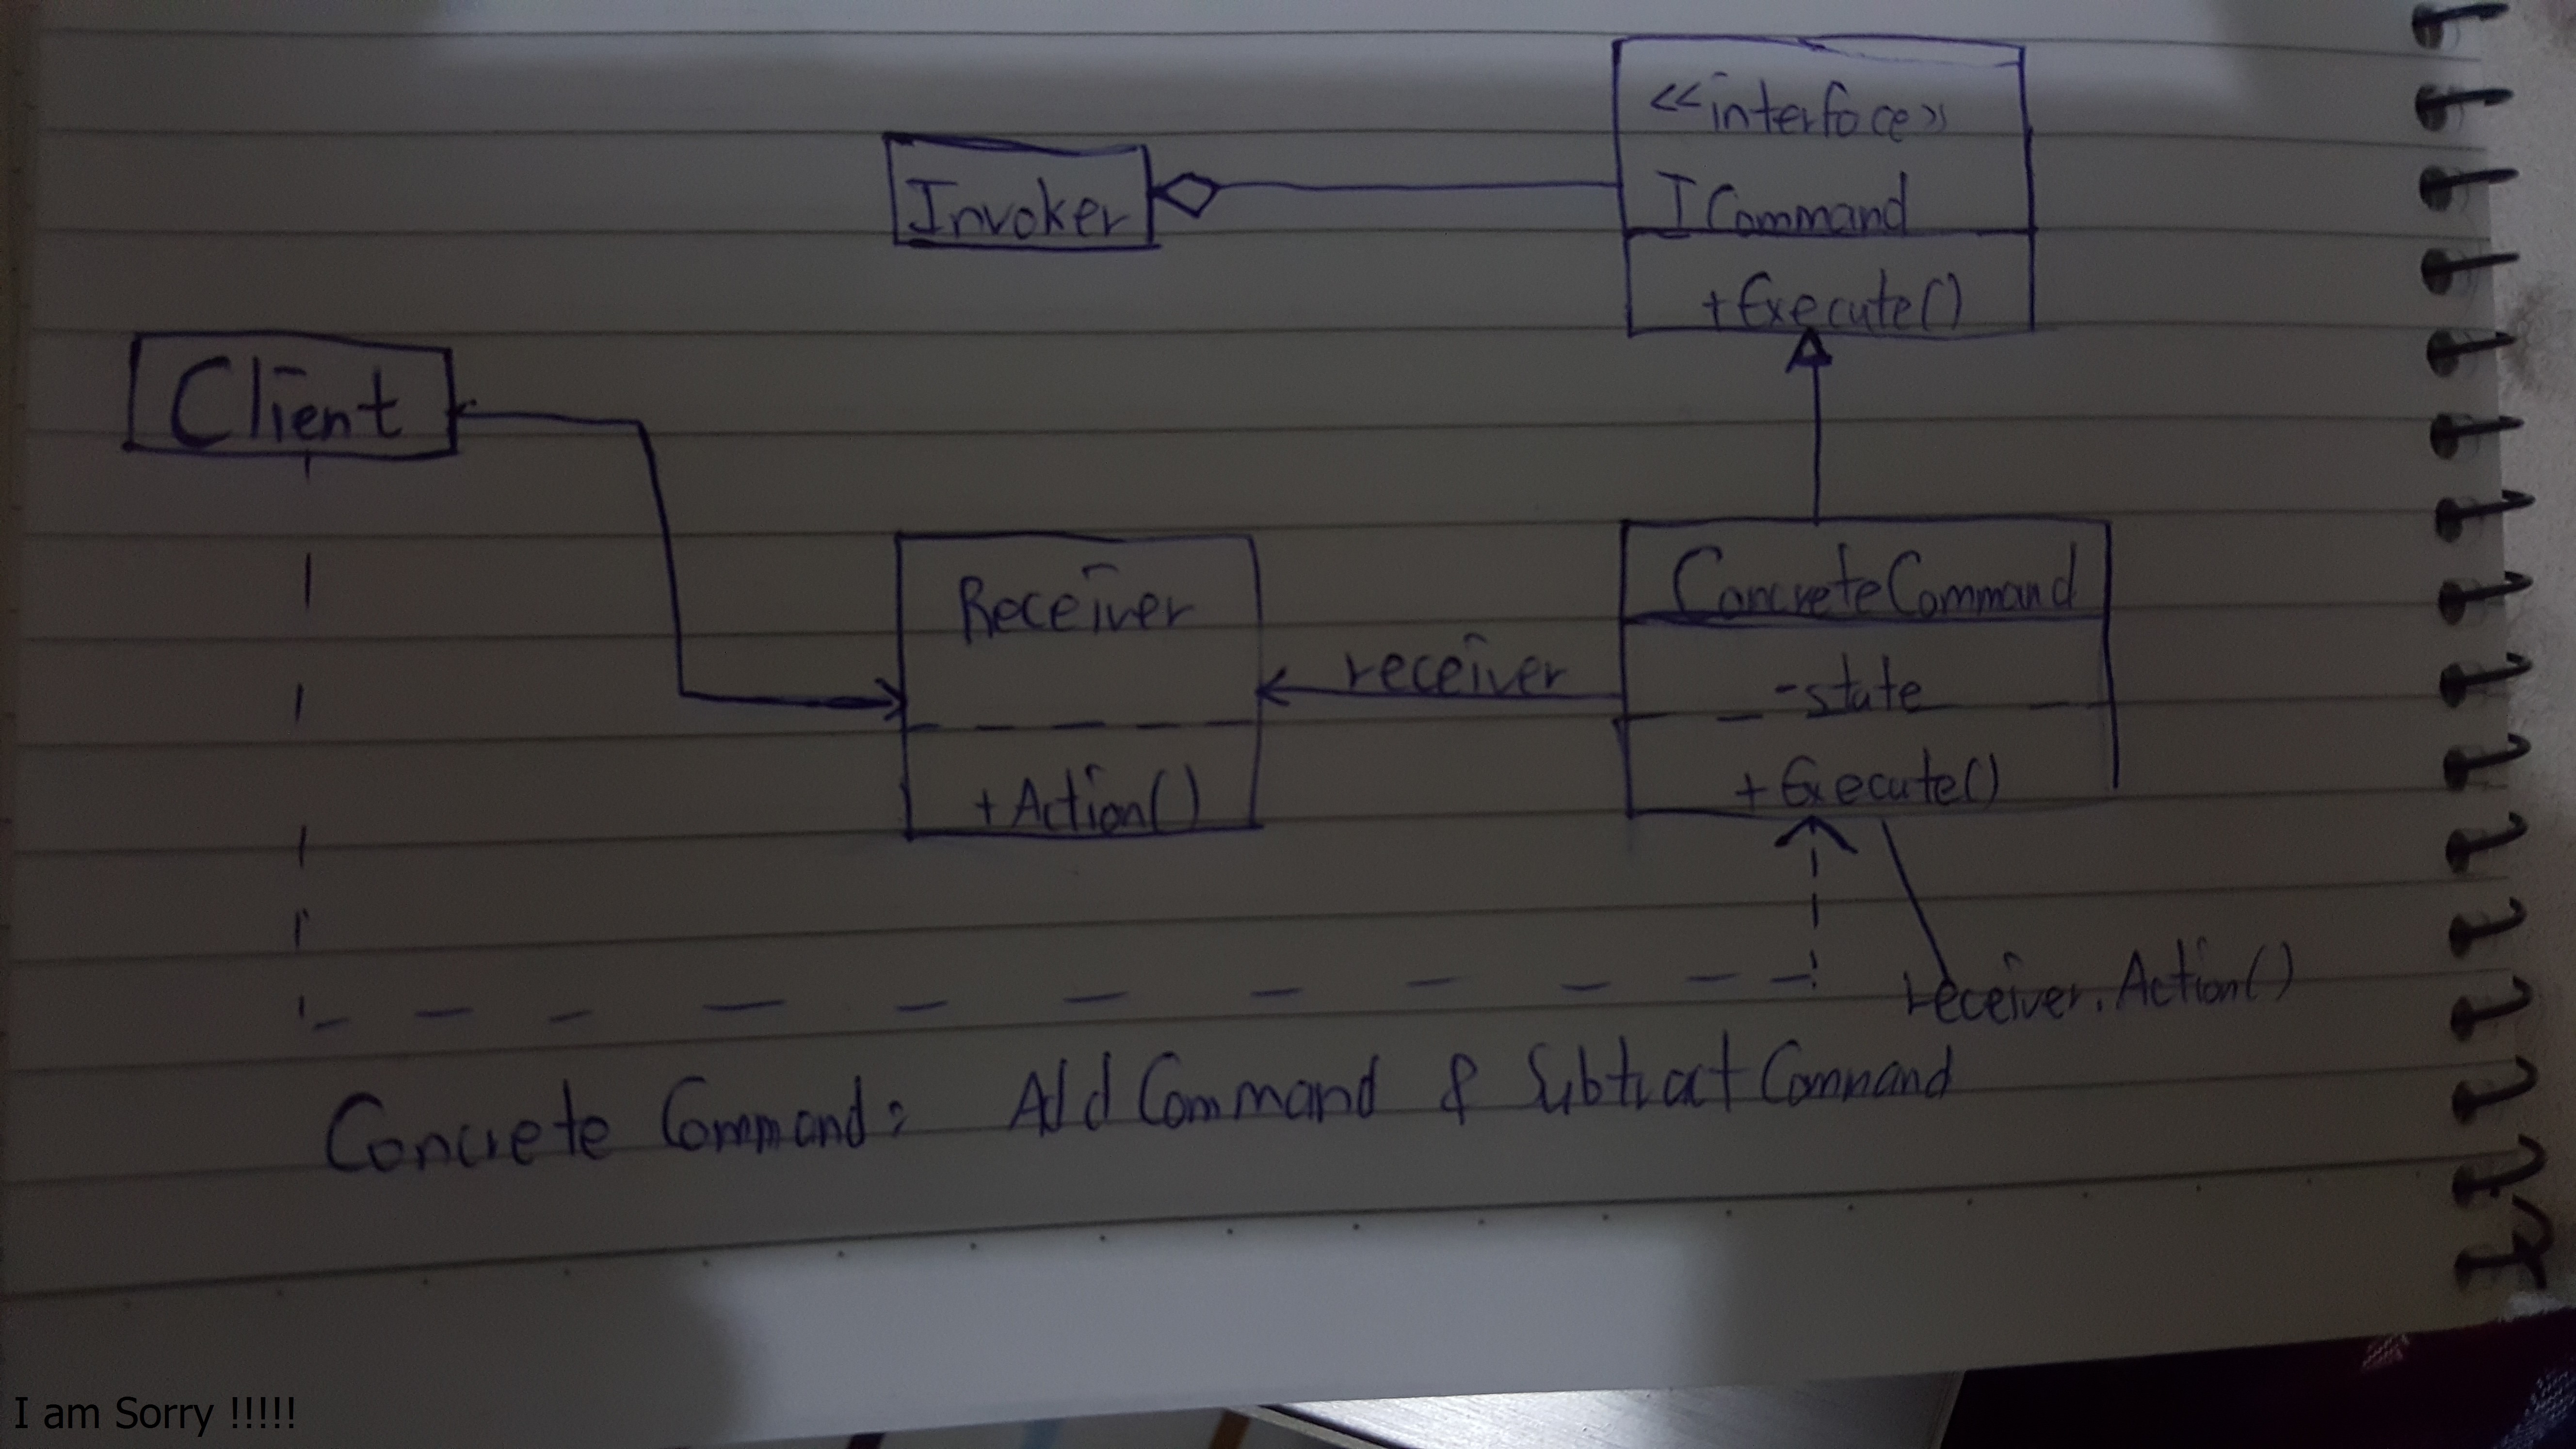 <<interface>>
ICommand
+Execute()
Invoker
Client
Receiver
+Action()
receiver
ConcreteCommand
-state
+Execute()
receiver.Action()
Concrete Command: Add Command & Subtract Command
I am Sorry !!!!!